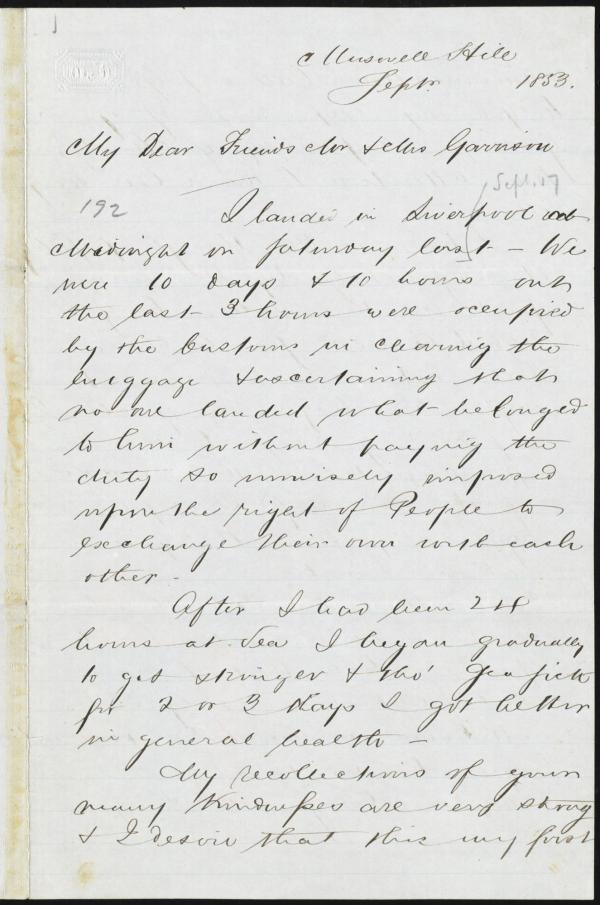 Muswell Hill
Septr 1853.
My Dear Friends Mr & Mrs Garrison
Sept. 17
192
I landed in Liverpool at
Midnight on Saturday last - We
were 10 days & 10 hours out
the last 3 hours were occupied
by the Customs in clearing the
luggage & ascertaining that
no one landed what belonged
to him without paying the
duty so unwisely imposed
upon the right of People to
exchange their own with each
other -
After I had been 24
hours at Sea I began gradually
to get stronger & tho' Sea sick
for 2 or 3 days I got better
in general health -
My recollections of your
many Kindnesses are very strong
& I desire that this my first